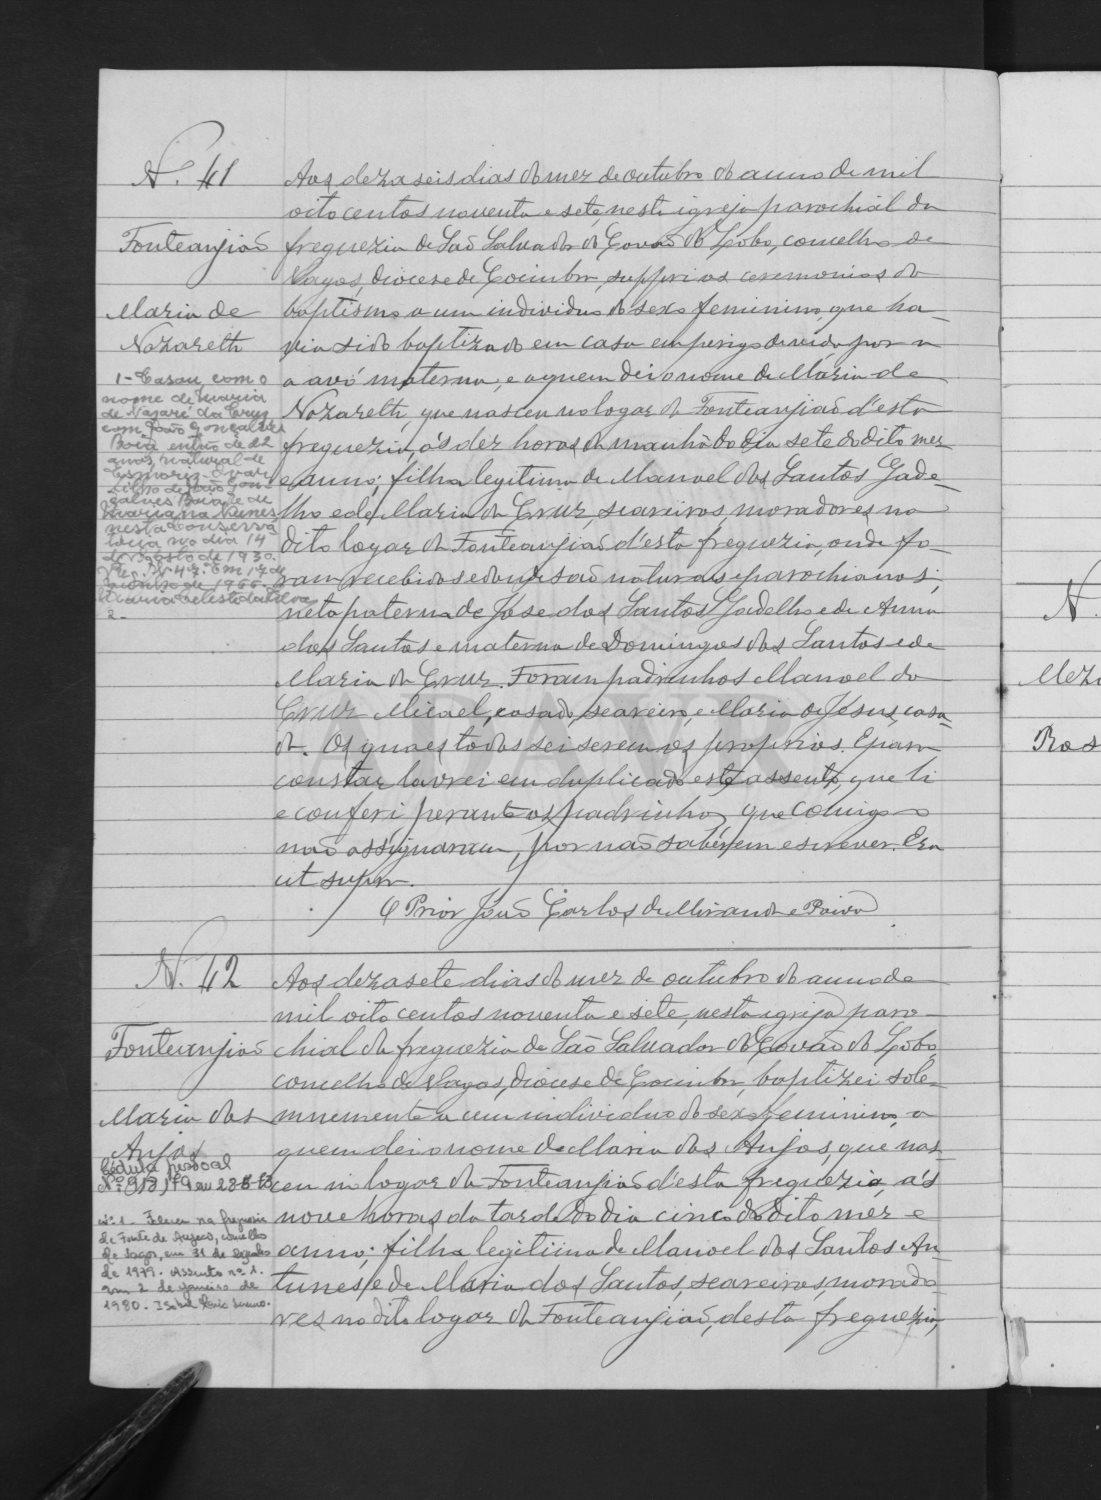 N.º 41
Fonteanjiaõ
Maria de
Nazareth
1-Casou com o
nome de Maria
de Nazaré da Cruz
com João Gonçalves
Boia entio de 22
anos, natural de
Esmoriz - Ovar
filho de João Gon-
çalves Boia e de
Mariana Nunes
nesta Conserva
toria no dia 14
de Agosto de 1930.
Em 17 de
de 1966
Maria Celeste da Silva
2-
Aos dezaseis dias do mez de outubro do anno de mil
oito centos noventa e sete, nesta igreja parochial da
freguezia de Saõ Salvador do Covaõ do Lobo, concelho de
Vagos, diocese de Coimbra, suppri as ceremonias do
baptismo a um individuo do sexo feminino, que ha-
via sido baptizado em casa em perigo de vida por a
a avó materna, e a quem dei o nome de Maria de
Nazareth, que nasceu no logar da Fonteanjiaõ d'esta
freguezia, ás dez horas da manhã do dia sete do dito mez
e anno; filha legitima de Manoel dos Santos Gade-
lho e de Maria da Cruz, seareiros, moradores no
dito logar da Fonteanjiaõ d'esta freguezia, onde fo-
ram recebidos e donde saõ naturaes e parochianos;
neta paterna de José dos Santos Gadelho e de Anna
dos Santos e materna de Domingos dos Santos e de
Maria da Cruz. Foram padrinhos Manoel da
Cruz Micael, casado, seareiro, e Maria de Jesus, casa-
da. Os quaes todos sei serem os proprios. E para
constar lavrei em duplicado este assento, que li
e conferi perante os padrinhos, que comigo
naõ assignaram, por naõ saberem escrever. Era
ut supra.
O Prior Joaõ Carlos de Miranda e Paiva
N.º 42
Fonteanjiaõ
Maria dos
Anjos
Cédula pessoal
Nº 918179 em 23-8-63
nº 1. Faleceu na freguesia
de Fonte de Angeão, concelho
de Vagos, em 31 de Dezembro
de 1979. Assento nº 1.
em 2 de Janeiro de
1980. Isabel
Aos dezasete dias do mez de outubro do anno de
mil oito centos noventa e sete, nesta igreja paro-
chial da freguezia de Saõ Salvador do Covaõ do Lobo,
concelho de Vagos, diocese de Coimbra, baptizei sole-
mnemente a um individuo do sexo feminino, a
quem dei o nome de Maria dos Anjos, que nas-
ceu no logar da Fonteanjiaõ d'esta freguezia, ás
nove horas da tarde do dia cinco do dito mez e
anno; filha legitima de Manoel dos Santos An
tunes, e de Maria dos Santos, seareiros, morado
res no dito logar da Fonteanjiaõ, desta freguezia,
N.
Ros